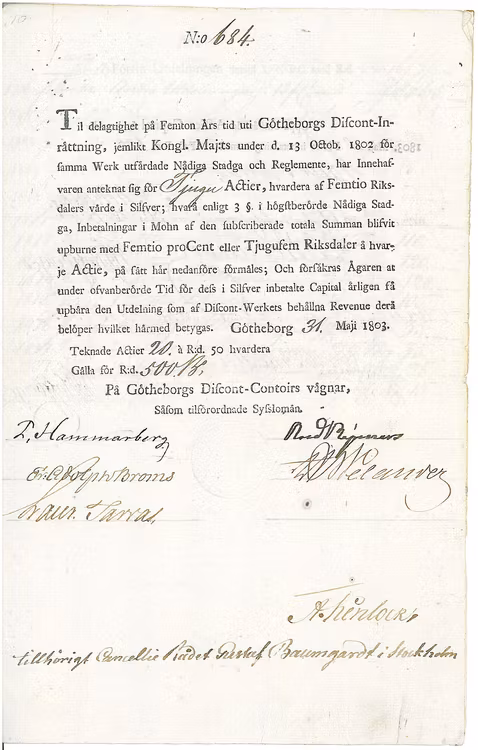 N:o 684.
Til delagtighet på Femton Års tid uti Götheborgs Discont-In-
råttning, jemlikt Kongl. Maj:ts under d. 13 Octob. 1802 för
samma Werk utfårdade Nådiga Stadga och Reglemente, har Innehaf-
varen anteknat sig för Tjugu Actier, hvardera af Femtio Riks-
dalers vårde i Silfver; hvara enligt 3 §. i högstberörde Nådiga Stad-
ga, Inbetalningar i Mohn af den subscriberade totala Summan blifvit
upburne med Femtio proCent eller Tjugufem Riksdaler å hvar-
je Actie, på sätt hår nedanföre förmåles; Och försåkras Ågaren at
under ofvanberörde Tid för dess i Silfver inbetalte Capital årligen få
upbåra den Utdelning som af Discont-Werkets behållna Revenue derå
belöper hvilket hårmed betygas. Götheborg 31. Maji 1803.
Teknade Actier 20. à R:d. 50 hvardera
Gålla för R:d. 500
På Götheborgs Discont-Contoirs vågnar,
Såsom tilförordnade Sysslomån.
P. Hammarberg
Adolph Broms
Welander
Laur. Tarras
tillhörigt Cancellie Rådet Gustaf Baumgardt i Stockholm